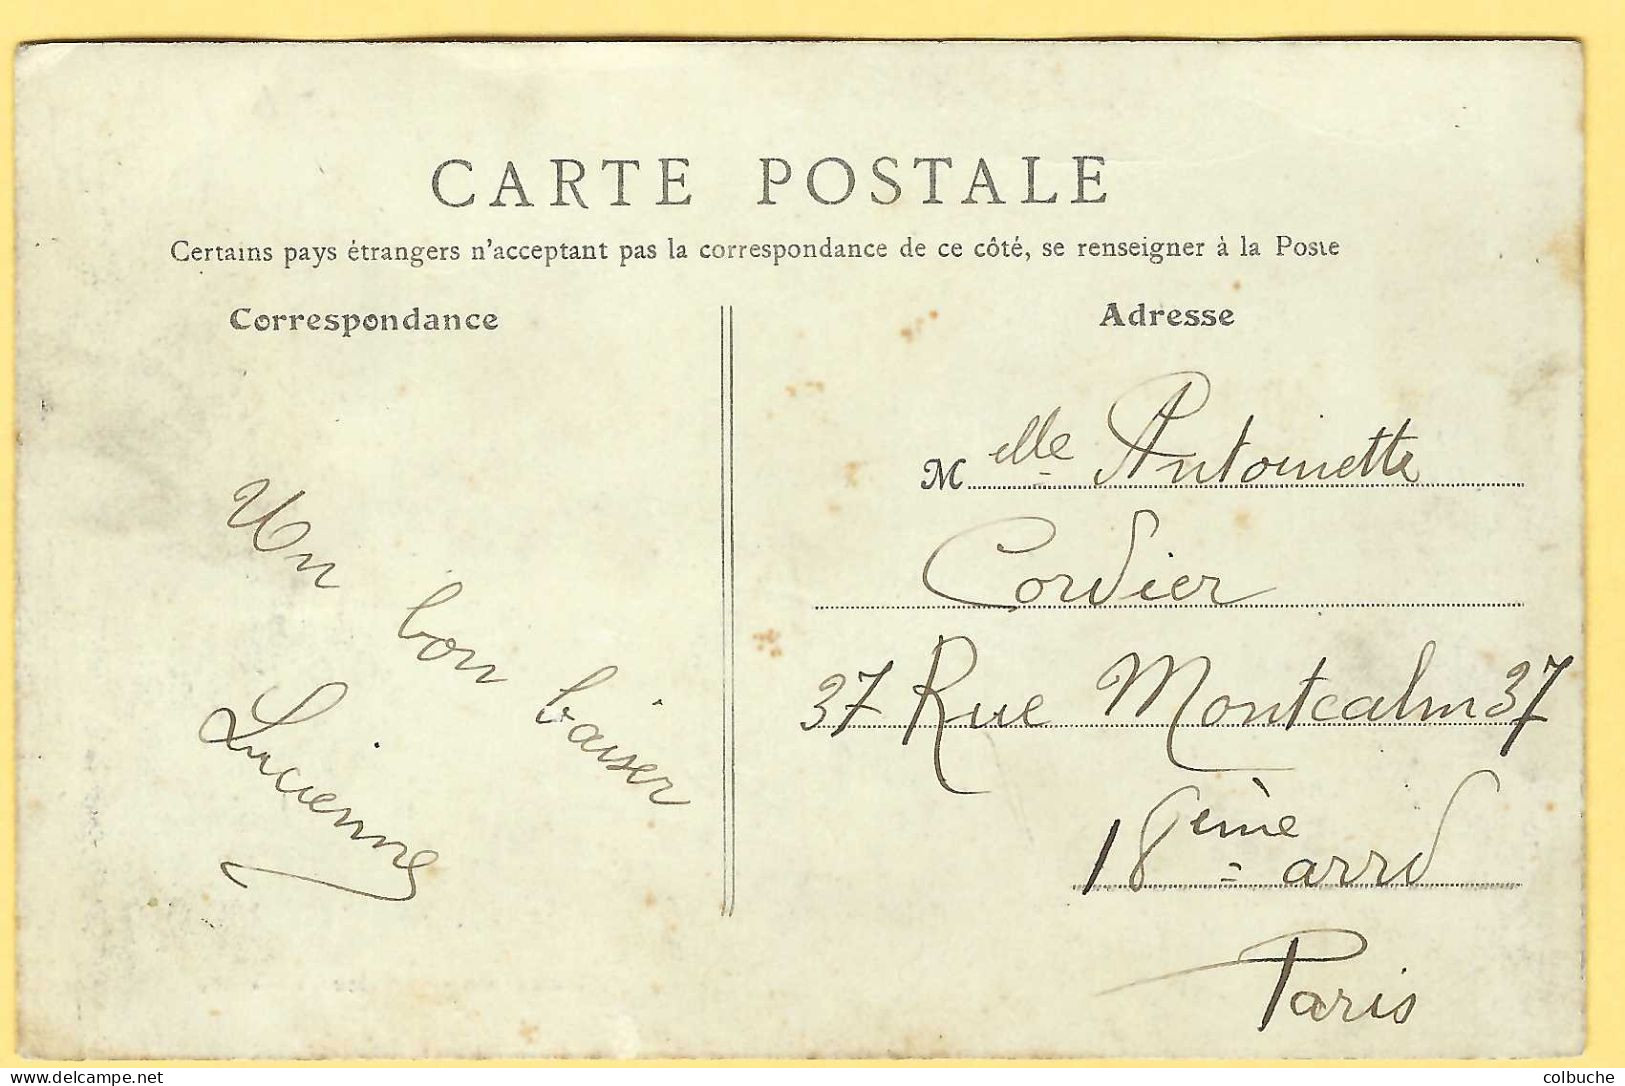 CARTE POSTALE
Certains pays étrangers n'acceptant pas la correspondance de ce côté, se renseigner à la Poste
Correspondance
Un bon baiser
Lucienne
Adresse
Melle Antoinette
Cordier
37 Rue Montcalm 37
18ème arrd
Paris
www.delcampe.net
colbuche